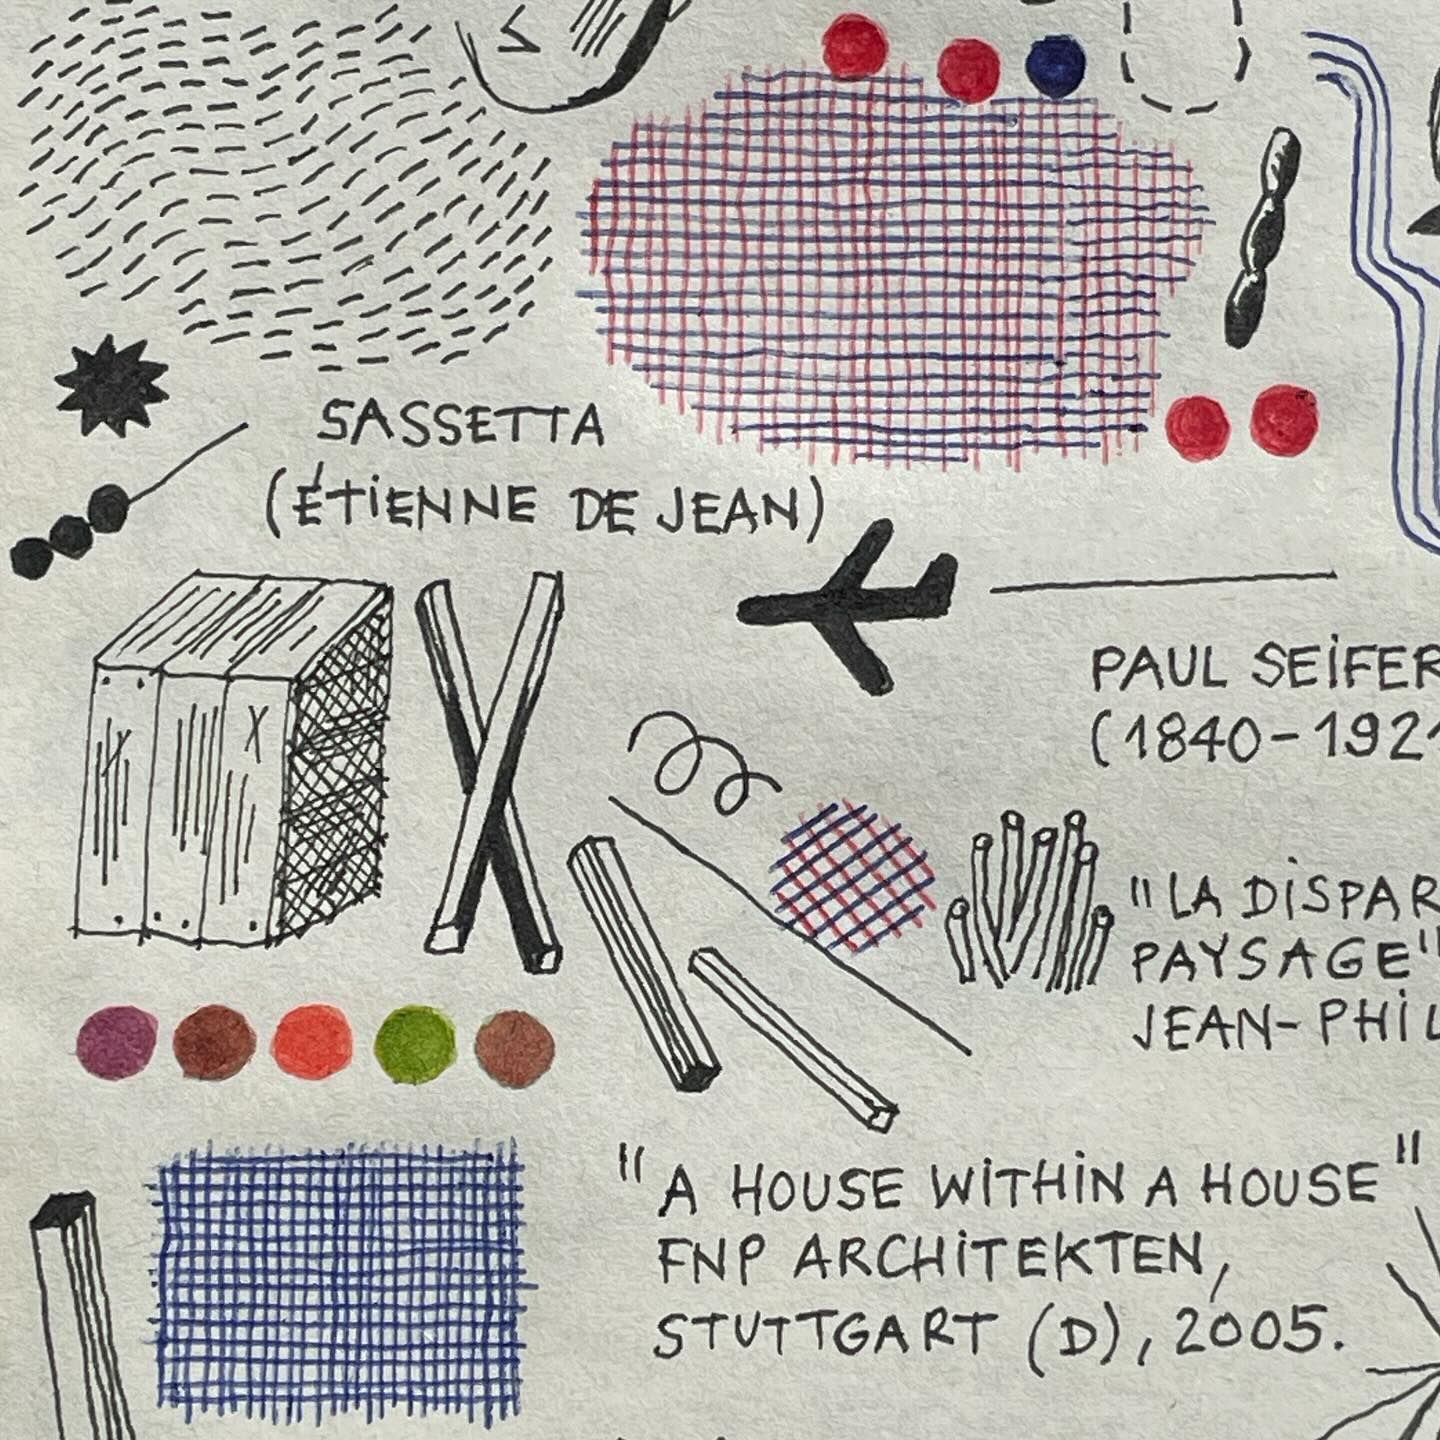 SASSETTA
(ÉTIENNE DE JEAN)
PAUL SEIFER
(1840-192
"LA DISPAR
PAYSAGE"
JEAN-PHIL
"A HOUSE WITHIN A HOUSE"
FNP ARCHITEKTEN,
STUTTGART (D), 2005.